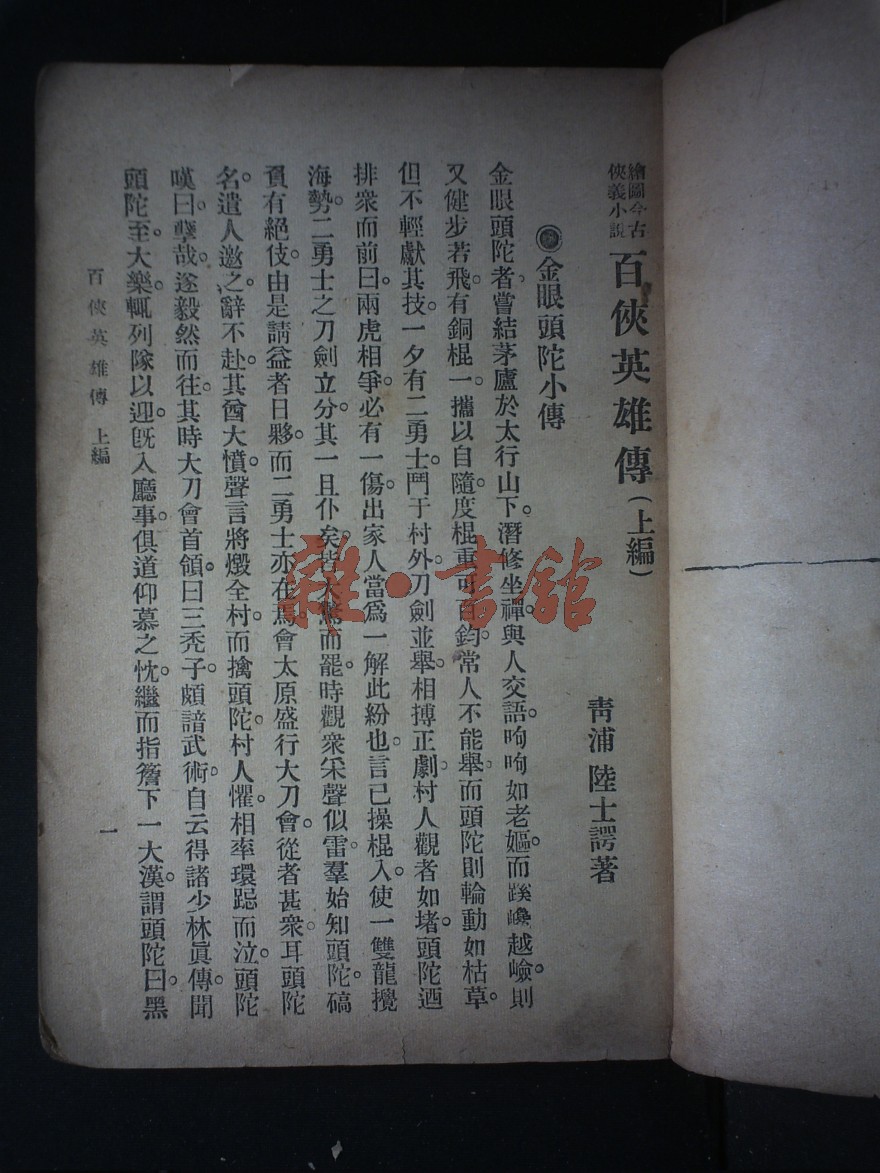 繪圖今古
俠義小說
百俠英雄傳(上編)
青浦 陸士諤著
金眼頭陀小傳
金眼頭陀者嘗結茅廬於太行山下。潛修坐禪與人交語。呴呴如老嫗。而蹊巉越嶮。則
又健步若飛。有銅棍一。攜以自隨。度棍重可百鈞。常人不能舉。而頭陀則輪動如枯草。
但不輕獻其技。一夕有二勇士鬥于村外。刀劍並舉。相搏正劇。村人觀者如堵。頭陀迺
排衆而前曰。兩虎相爭。必有一傷。出家人當爲一解此紛也。言已操棍入。使一雙龍攪
海勢。二勇士之刀劍立分。其一且仆矣。皆大驚而罷。時觀衆采聲似雷。羣始知頭陀。碻
負有絕伎。由是請益者日夥。而二勇士亦在焉。會太原盛行大刀會。從者甚衆。耳頭陀
名。遣人邀之。辭不赴。其酋大憤。聲言將燬全村。而擒頭陀。村人懼。相率環跽而泣。頭陀
嘆曰。孽哉。遂毅然而往。其時大刀會首領。曰三禿子。頗諳武術。自云得諸少林眞傳。聞
頭陀至。大樂。輒列隊以迎。旣入廳事。俱道仰慕之忱。繼而指簷下一大漢。謂頭陀曰。黑
百俠英雄傳 上編
一
雜·書館